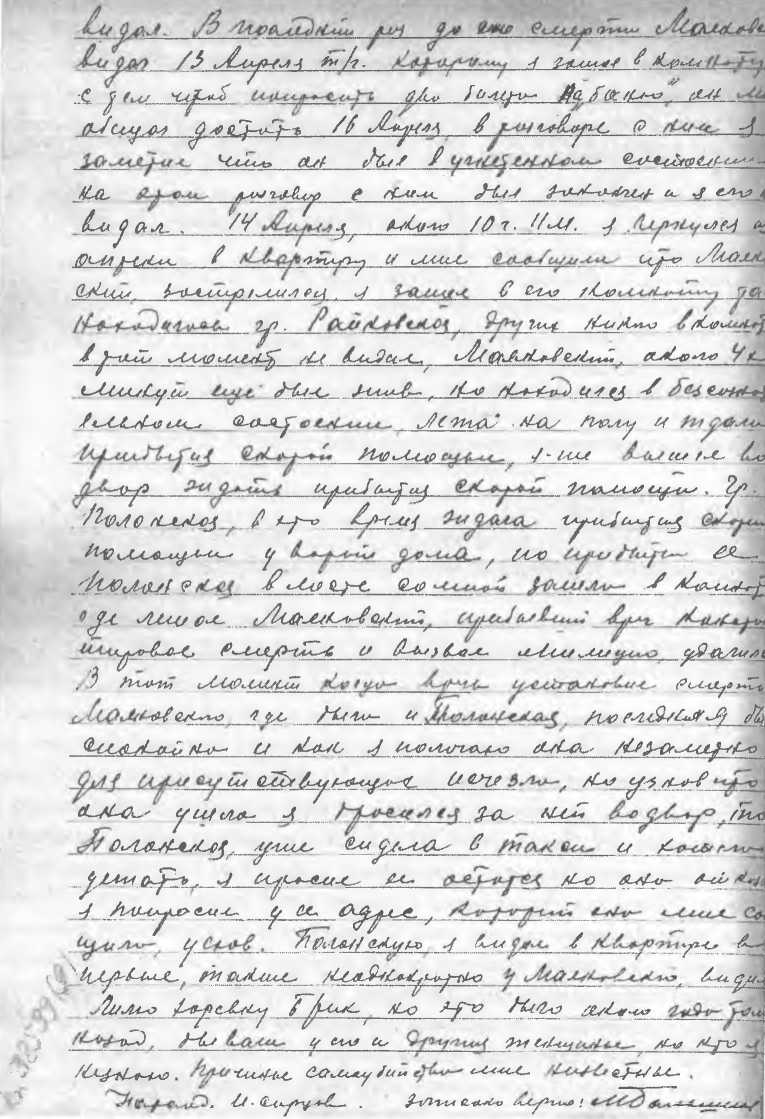 видал. В последний раз до его смерти Маяковс
видал 13 Апреля т/г. которому я зашел в комнату
с тем чтоб попросить два билета "Аа баню", он м
обещал достать 16 Апреля, в разговоре с ним я
заметил что он был в угнетенном состоянии
на этом разговор с ним был закончен и я его
видал. 14 Апреля, около 10 г. 11 м. я вернулся
аптеки в квартиру и мне сообщили что Маяк
ский, застрелился, я зашел в его комнату
находилась гр. Райковская, других никого в комнат
в тот момент не видал, Маяковский, около 4х
минут еще был жив, но находился в безсозна
ельном состоянии, лежа на полу и ждали
прибытия скорой помощи, я-же вышел во
двор ждать прибытия скорой помощи. Гр.
Полонская, в это время ждала прибытия скорой
помощи у ворот дома, по прибытии ее
Полонская вместе со мной зашли в комнат
где лежал Маяковский, прибывший врач констат
тировал смерть и вызвал милицию,
В тот момент когда врач установил смерть
Маяковского, где была и Полонская, последняя бы
спокойна и как я полагаю она незаметно
для присутствующих исчезла, но узнав что
она ушла я бросился за ней во двор,
Полонская, уже сидела в такси и хотела
уехать, я просил ее остаться но она отказ
я попросил у ее адрес, который она мне со
щила, уехав. Полонскую, я видал в квартире в
первые, также неоднократно у Маяковского, видал
Лилю Юрьевну Брик, но это было около года том
назад, бывали у его и другия женщины но кто я
незнаю. Причины самоубийства мне неизвестны.
Народ. следов. И. Сырцов. Записано верно:
вх 32599(2)